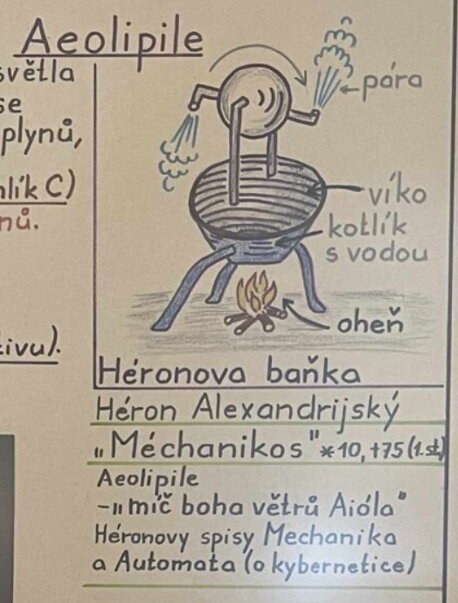 Aeolipile
světla
se
plynů,
hlík C)
nů.
tivu).
pára
víko
kotlík
s vodou
oheň
Héronova baňka
Héron Alexandrijský
„Méchanikos" *10, +75 (1.st)
Aeolipile
-„míč boha větrů Aióla"
Héronovy spisy Mechanika
a Automata (o kybernetice)